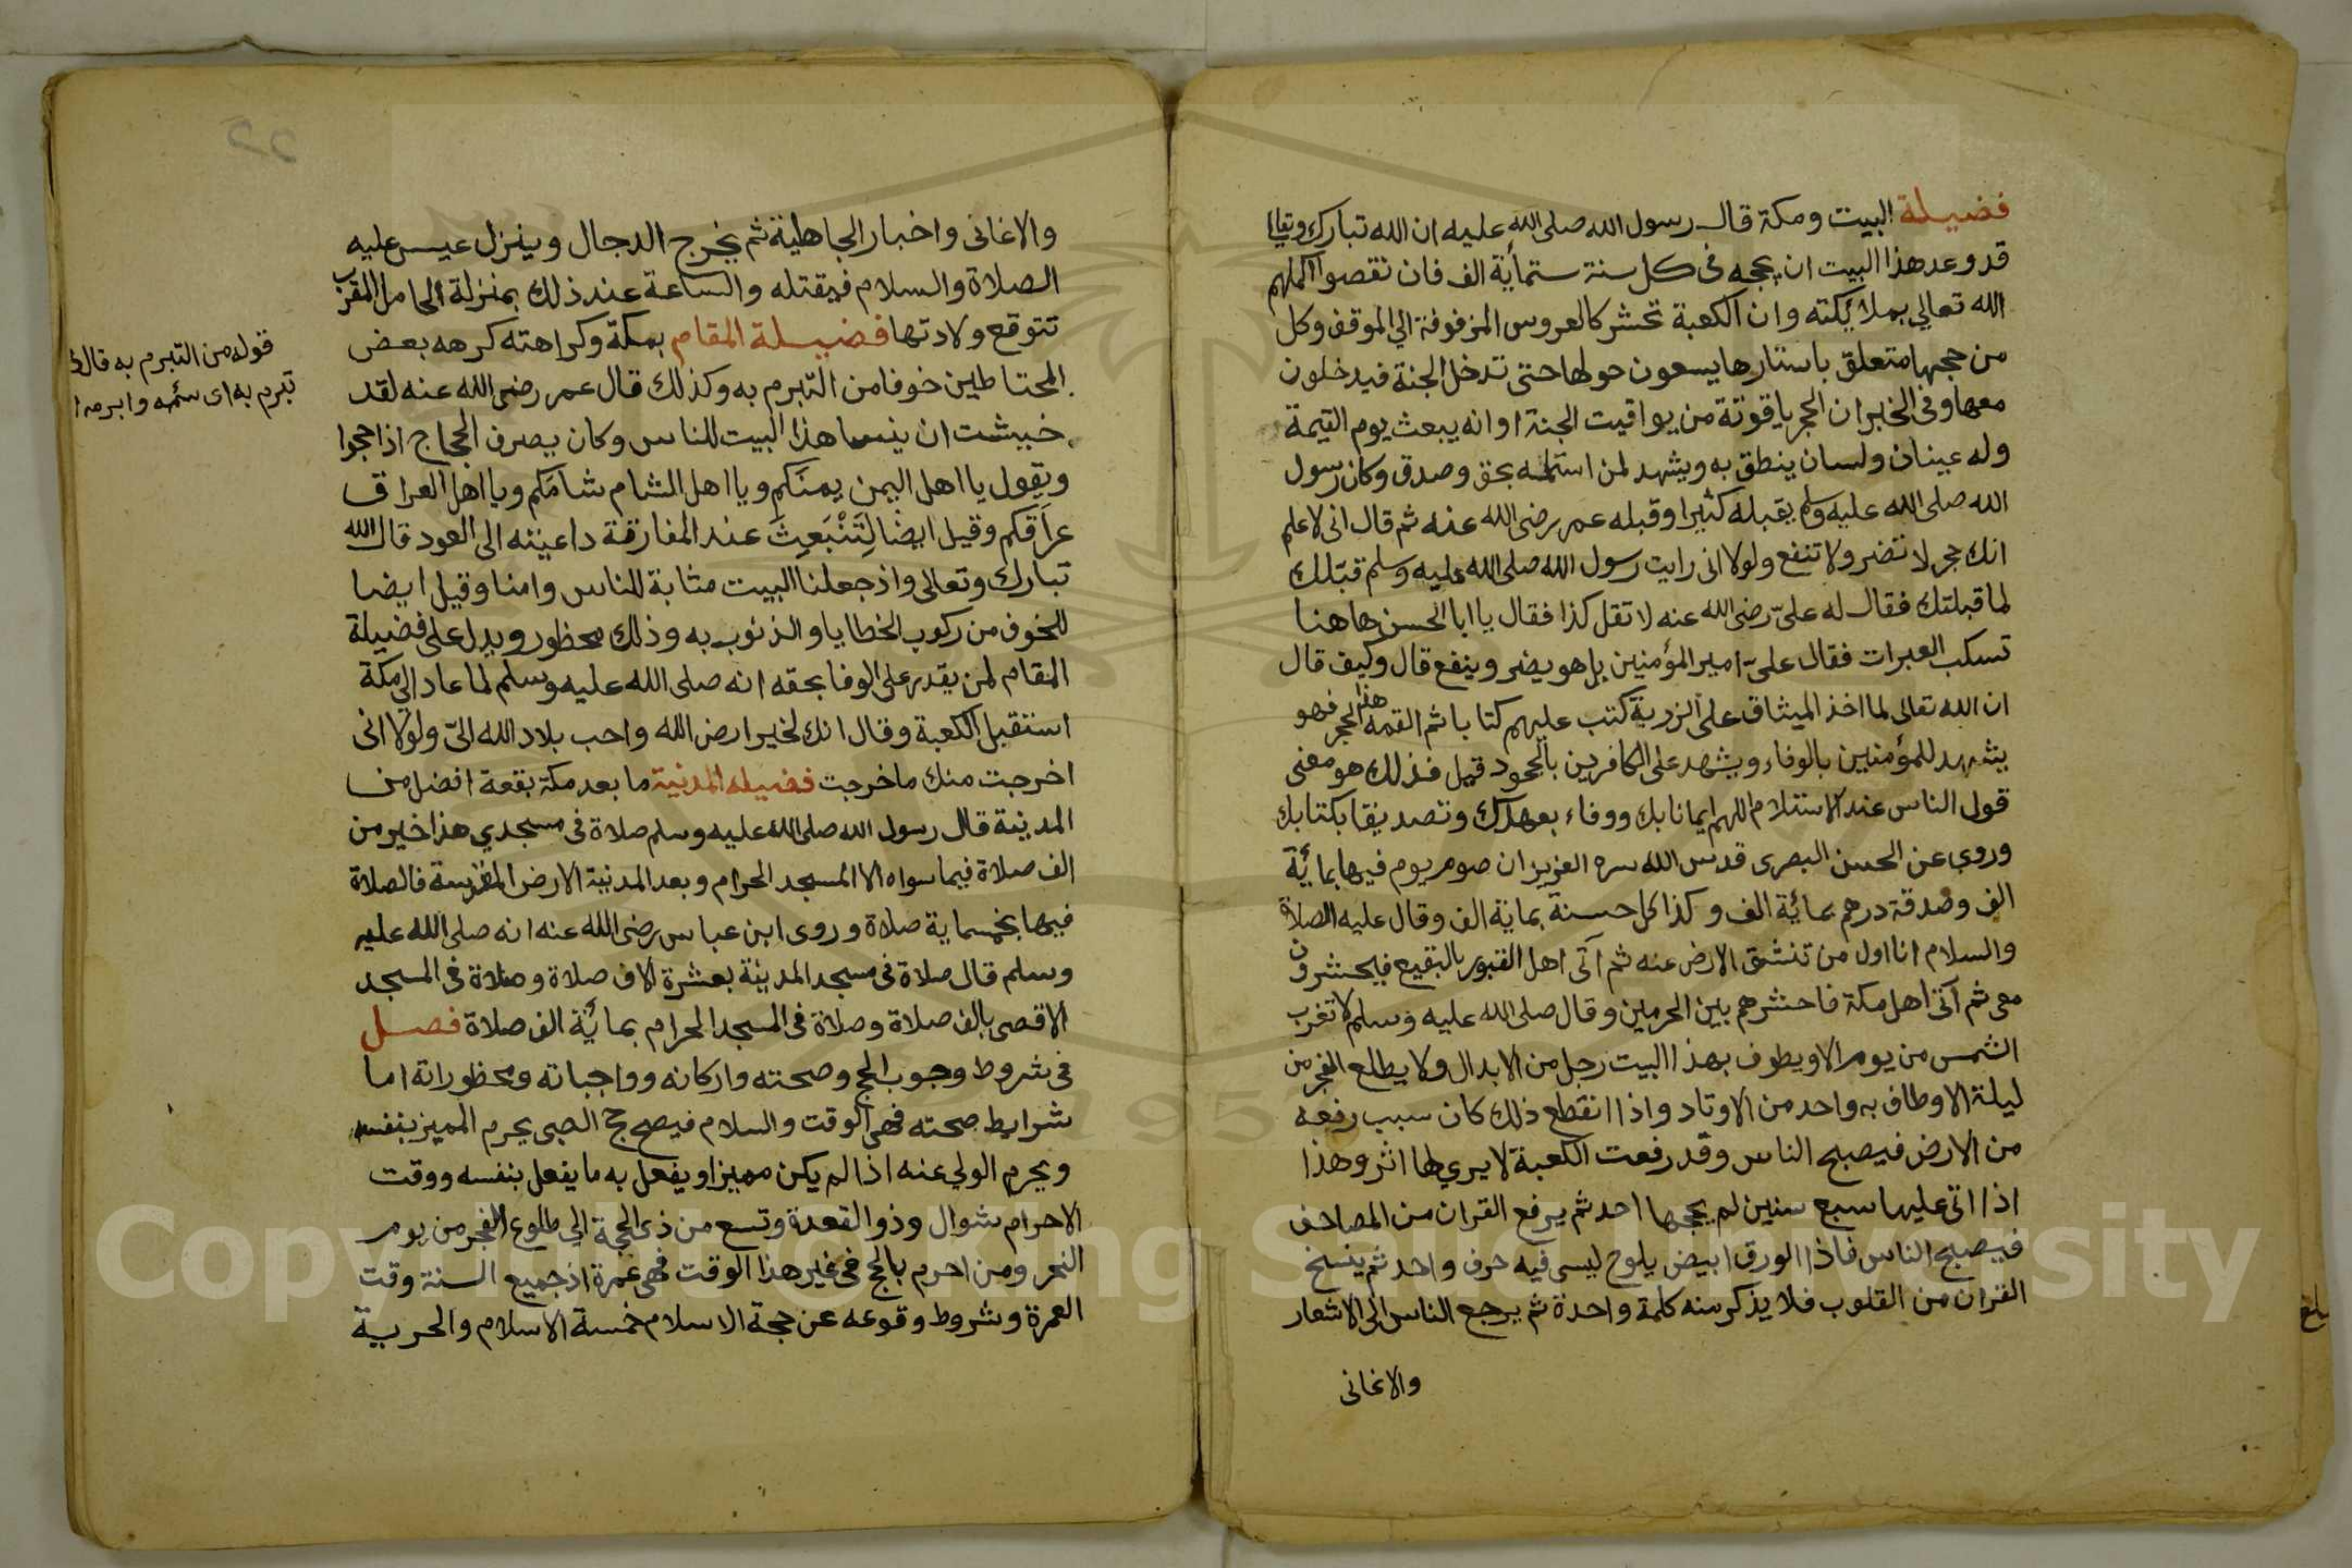 فضيلة البيت ومكة قال رسول الله صلى الله عليه ان الله تبارك وتعالى
قد وعد هذا البيت ان يحجه فى كل سنة ستمأية الف فان نقصوا اكملهم
الله تعالي بملائكته وان الكعبة تحشر كالعروس المزفوفة الي الموقف وكل
من حجها متعلق باستارها يسعون حولها حتى تدخل الجنة فيدخلون
معها وفى الخبر ان الحجر ياقوتة من يواقيت الجنة او انه يبعث يوم القيمة
وله عينان ولسان ينطق به ويشهد لمن استلمه بحق وصدق وكان رسول
الله صلى الله عليه وسلم يقبله كثيرا وقبله عمر رضى الله عنه ثم قال انى لاعلم
انك حجر لا تضر ولا تنفع ولولا انى رايت رسول الله صلى الله عليه وسلم قبّلك
لما قبلتك فقال له علىّ رضى الله عنه لا تقل كذا فقال يا ابا الحسن هاهنا
تسكب العبرات فقال علىّ امير المؤمنين بل هو يضر وينفع قال وكيف قال
ان الله تعالى لما اخذ الميثاق على الذرية كتب عليهم كتابا ثم القمه هذا الحجر فهو
يشهد للمؤمنين بالوفاء ويشهد على الكافرين بالجحود قيل فذلك هو معنى
قول الناس عند الاستلام اللهم ايمانا بك ووفاء بعهدك وتصديقا بكتابك
وروى عن الحسن البصرى قدس الله سره العزيز ان صوم يوم فيها بمائة
الف وصدقة درهم بمائة الف وكذا كل حسنة بماية الف وقال عليه الصلاة
والسلام انا اول من تنشق الارض عنه ثم آتى اهل القبور بالبقيع فيحشرون
معى ثم آتى اهل مكة فاحشرهم بين الحرمين وقال صلى الله عليه وسلم لا تغرب
الشمس من يوم الا ويطوف بهذا البيت رجل من الابدال ولا يطلع الفجر من
ليلة الا وطاف به واحد من الاوتاد واذا انقطع ذلك كان سبب رفعه
من الارض فيصبح الناس وقد رفعت الكعبة لا يري لها اثر وهذا
اذا اتى عليها سبع سنين لم يحجها احد ثم يرفع القران من المصاحف
فيصبح الناس فاذا الورق ابيض يلوح ليس فيه حرف واحد ثم ينسخ
القران من القلوب فلا يذكر منه كلمة واحدة ثم يرجع الناس الى الاشعار
والاغانى
بلغ
والاغانى واخبار الجاهلية ثم يخرج الدجال وينزل عيسى عليه
الصلاة والسلام فيقتله والساعة عند ذلك بمنزلة الحامل المقرب
تتوقع ولادتها فضيلة المقام بمكة وكراهته كرهه بعض
المحتاطين خوفا من التبرم به وكذلك قال عمر رضى الله عنه لقد
خشيت ان ينسا هذا البيت للناس وكان يصرف الحجاج اذا حجوا
ويقول يا اهل اليمن يمنكم ويا اهل الشام شامكم ويا اهل العراق
عراقكم وقيل ايضا لِتَنْبَعِثَ عند المفارقة داعيته الى العود قال الله
تبارك وتعالى واذ جعلنا البيت مثابة للناس وامنا وقيل ايضا
للخوف من ركوب الخطايا والذنوب به وذلك محظور ويدل على فضيلة
المقام لمن يقدر على الوفا بحقه انه صلى الله عليه وسلم لما عاد الى مكة
استقبل الكعبة وقال انك لخير ارض الله واحب بلاد الله الىّ ولولا انى
اخرجت منك ما خرجت فضيلة المدنية ما بعد مكة بقعة افضل من
المدينة قال رسول الله صلى الله عليه وسلم صلاة فى مسجدي هذا خير من
الف صلاة فيما سواه الا المسجد الحرام وبعد المدنية الارض المقدسة فالصلاة
فيها بخمسماية صلاة وروى ابن عباس رضى الله عنه انه صلى الله عليه
وسلم قال صلاة فى مسجد المدينة بعشرة الاف صلاة وصلاة فى المسجد
الاقصى بالف صلاة وصلاة فى المسجد الحرام بمائة الف صلاة فصل
فى شروط وجوب الحج وصحته واركانه وواجباته ومحظوراته اما
شرايط صحته فهى الوقت والسلام فيصح حج الصبى يحرم المميز بنفسه
ويحرم الولي عنه اذا لم يكن مميزا ويفعل به ما يفعل بنفسه ووقت
الاحرام شوال وذو القعدة وتسع من ذى الحجة الي طلوع الفجر من يوم
النحر ومن احرم بالحج فى غير هذا الوقت فهى عمرة اذ جميع السنة وقت
العمرة وشروط وقوعه عن حجة الاسلام خمسة الاسلام والحرية
قوله من التبرم به قال
تبرم به اى سئمه وابرمه
Copyright © King Saud University
1957